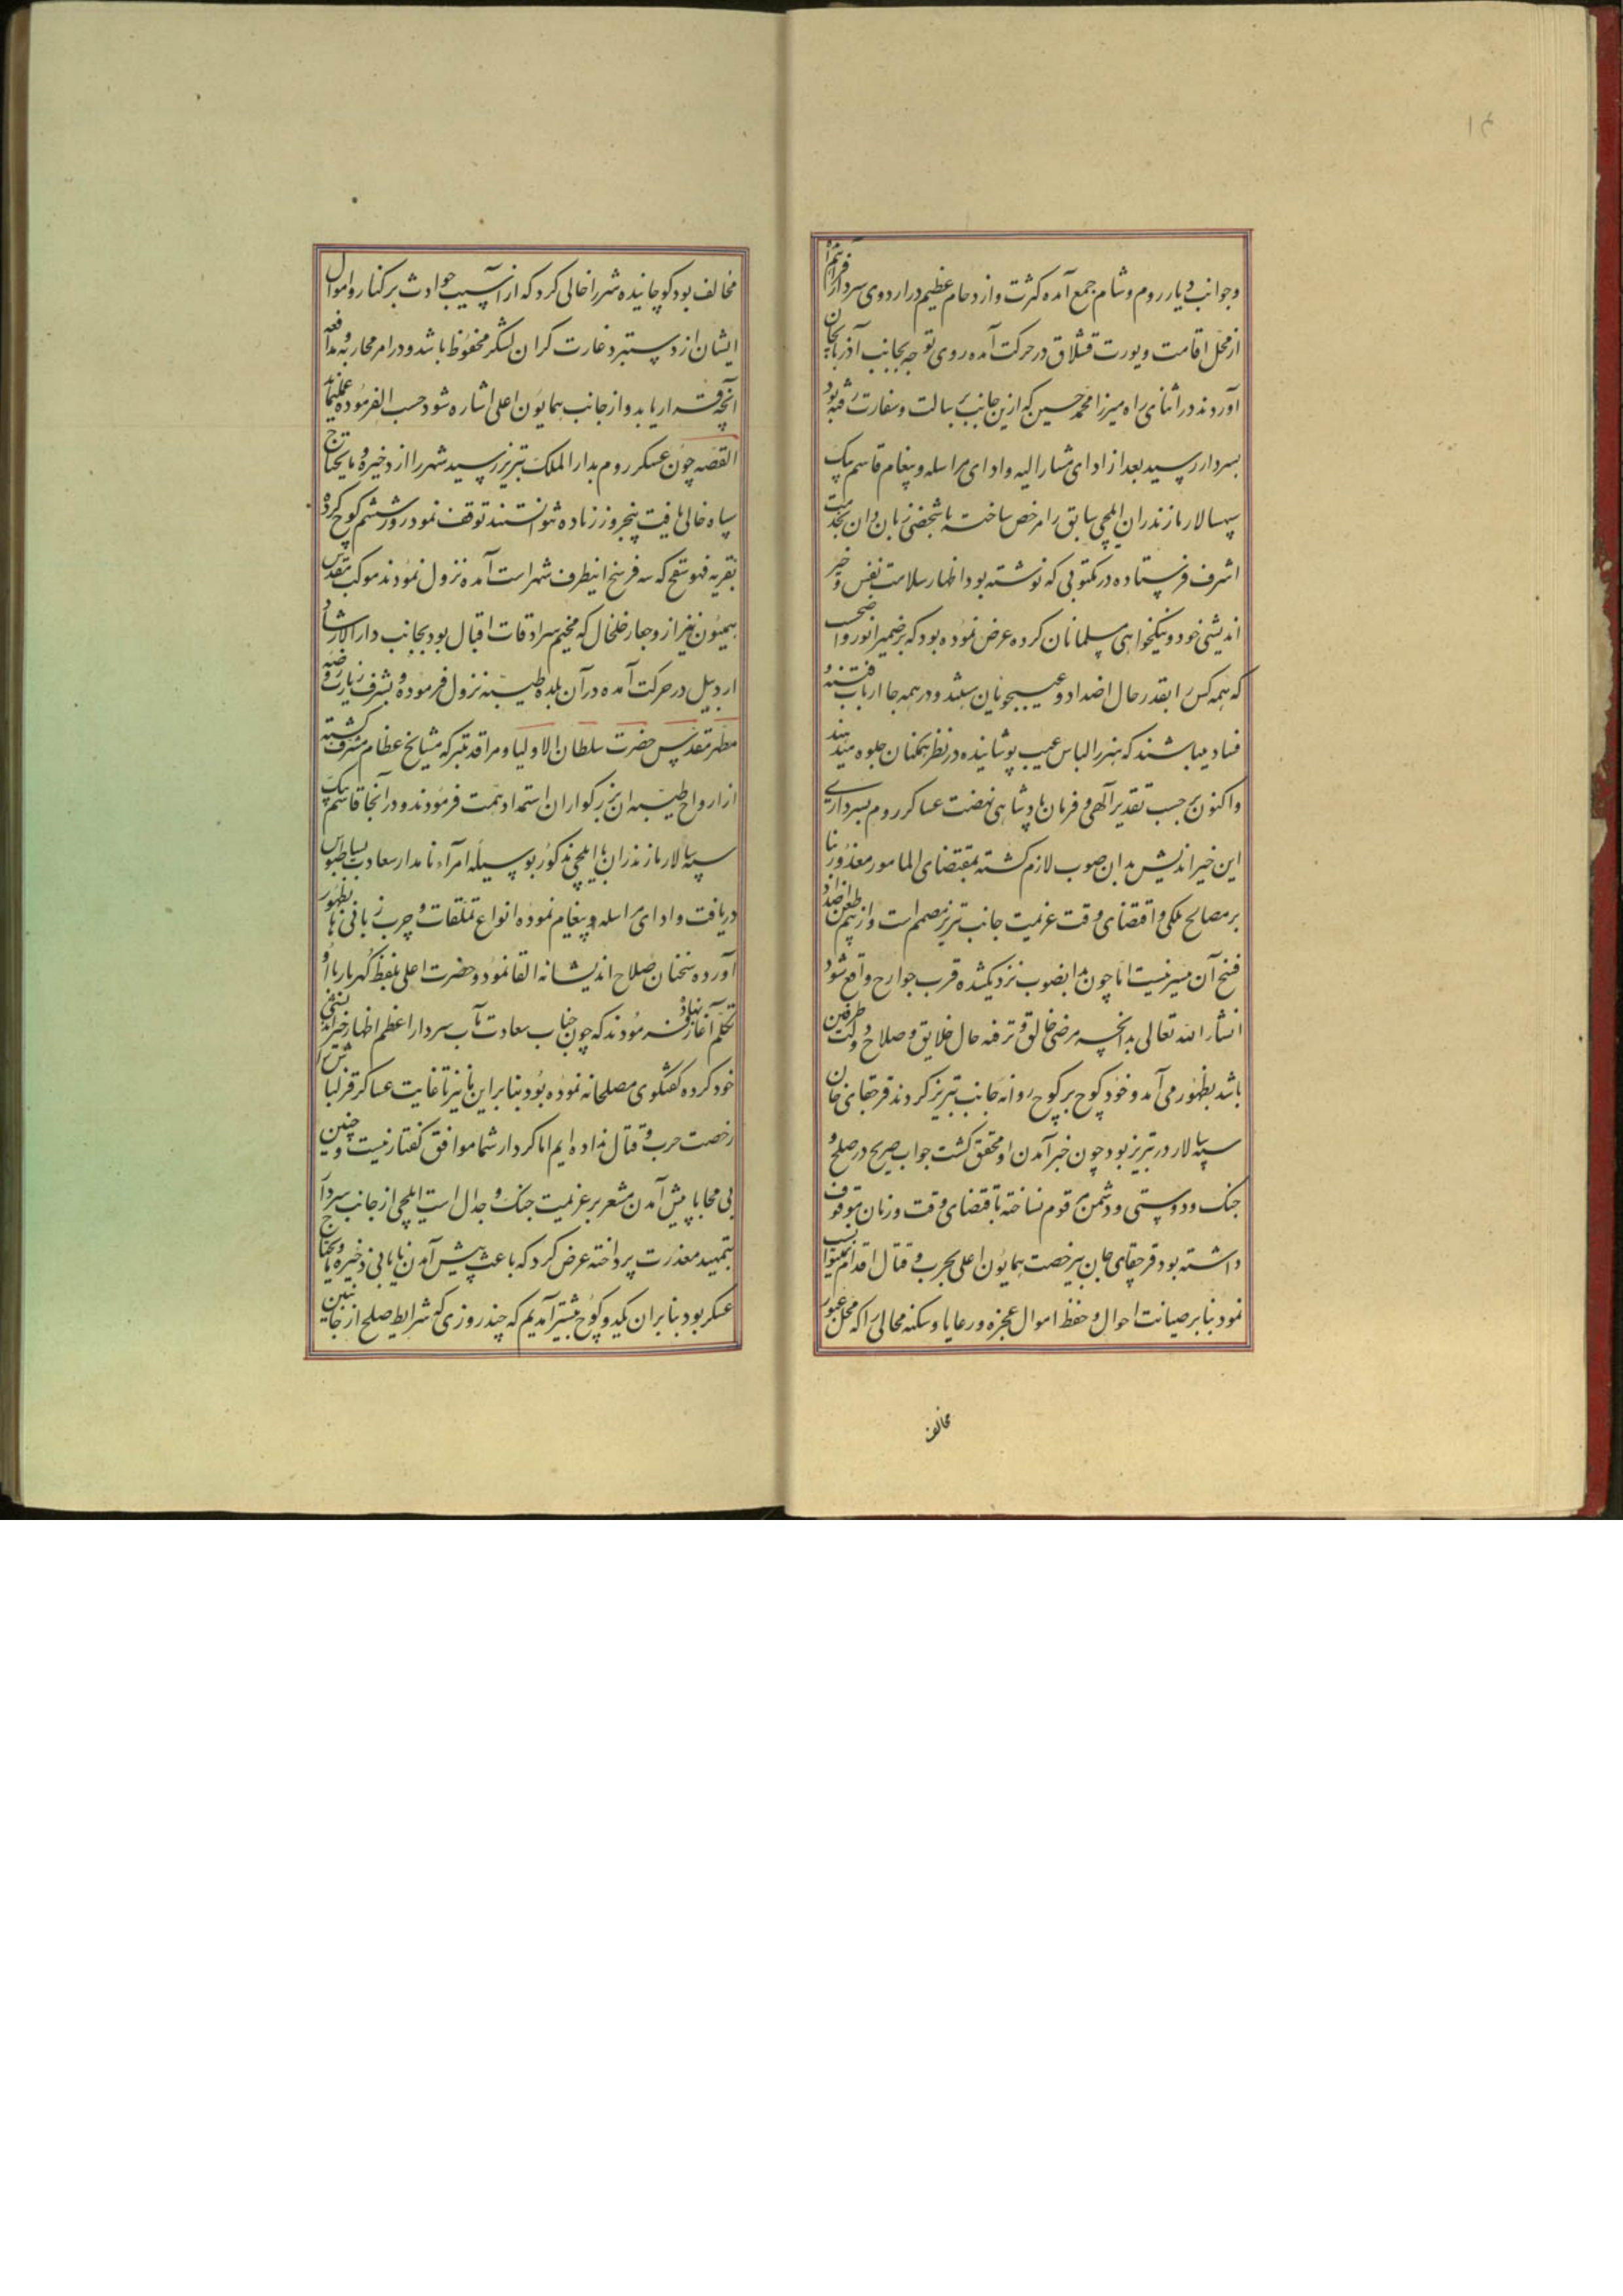 ۱۴
وجوانب دیار روم وشام جمع آمده کثرت وازدحام عظیم در اردوی سردار فراهم
از محل اقامت ویورت قشلاق در حرکت آمده روی توجه بجانب آذربایجان
آوردند در اثنای راه میرزا محمد حسین که ازین جانب برسالت وسفارت رفته بود
بسردار رسید بعد از ادای مشار الیه وادای مراسله وپیغام قاسم بیک
سپهسالار مازندران ایلچی سابق را مرخص ساخته با شخصی زبان دان بخدمت
اشرف فرستاده در مکتوبی که نوشته بود اظهار سلامت نفس وخیر
اندیشی خود ونیکخواهی مسلمانان کرده عرض نموده بود که بر ضمیر انور واضحست
که همه کس را بقدر حال اضداد وعیبجویان میباشند ودر همه جا ارباب فتنه و
فساد میباشند که هنر را لباس عیب پوشانیده در نظر همکنان جلوه میدهند
واکنون برحسب تقدیر الهی وفرمان پادشاهی نهضت عساکر روم بسرداری
این خیر اندیش بدان صوب لازم کشته بمقتضای المامور معذور بنا
بر مصالح ملکی واقتضای وقت عزیمت جانب تبریز مصمم است واز بیم طعن اضداد
فسخ آن میسر نیست اما چون بدانصوب نزدیکشده قرب جوارح واقع شود
انشاء الله تعالی بدانچه مرضی خالق وترفه حال خلایق وصلاح دولت طرفین
باشد بظهور می آمد وخود کوچ بر کوچ روانه جانب تبریز کردند قرچقای خان
سپه سالار در تبریز بود چون خبر آمدن او محقق کشت جواب صریح در صلح و
جنک ودوستی ودشمنی قوم نساخته باقتضای وقت وزمان موقوف
داشته بود قرچقای خان بیرخصت همایون اعلی بحرب وقتال اقدام نمیتوانست
نمود بنابر صیانت احوال وحفظ اموال عجزه ورعایا وسکنه محالی را که محل عبور
مخالف
مخالف بود کوچانیده شهر را خالی کرد که از آسیب حوادث بر کنار واموال
ایشان از دستبرد غارت کران لشکر محفوظ باشد ودر امر محاربه ومدافعه
آنچه قرار یابد واز جانب همایون اعلی اشاره شود حسب الفرموده عمل نمایند
القصه چون عسکر روم بدار الملک تبریز رسید شهر را از ذخیره ومایحتاج
سپاه خالی یافت پنجروز زیاده نتوانستند توقف نمود روز ششم کوچ کرده
بقریه فهوسفج که سه فرسخ اینطرف شهر است آمده نزول نمودند موکب مقدس
همیون نیز از وجار خلخال که مخیم سرادقات اقبال بود بجانب دار الارشاد
اردبیل در حرکت آمده در آن بلده طیبه نزول فرموده بشرف زیارت روضه
مطهر مقدس حضرت سلطان الاولیا ومراقد متبرکه مشایخ عظام مشرف کشته
از ارواح طیبه ان بزرکواران استمداد همت فرمودند ودر آنجا قاسم بیک
سپه سالار مازندران با ایلچی مذکور بوسیله امراء نامدار سعادت بساط بوس
دریافت وادای مراسله وپیغام نموده انواع تملقات وچرب زبانی ها بظهور
آورده سخنان صلاح اندیشانه القا نمود وحضرت اعلی بلفظ کهربار با او
تکلم آغاز نهاده فرمودند که چون جناب سعادت مآب سردار اعظم اظهار خیر اندیشی
خود کرده کفتکوی مصلحانه نموده بود بنابر این ما نیز تا غایت عساکر قزلباش را
رخصت حرب وقتال نداده ایم اما کردار شما موافق کفتار نیست وچنین
بی محابا پیش آمدن مشعر بر عزیمت جنک وجدال است ایلچی از جانب سردار
بتمهید معذرت پرداخته عرض کرد که باعث پیش آمدن نایابی ذخیره ومایحتاج
عسکر بود بنابران یکدو کوچ پیشتر آمدیم که چند روزی که شرایط صلح از جانبین